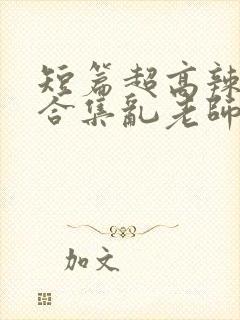 短篇超高辣
合集亂老師
加文